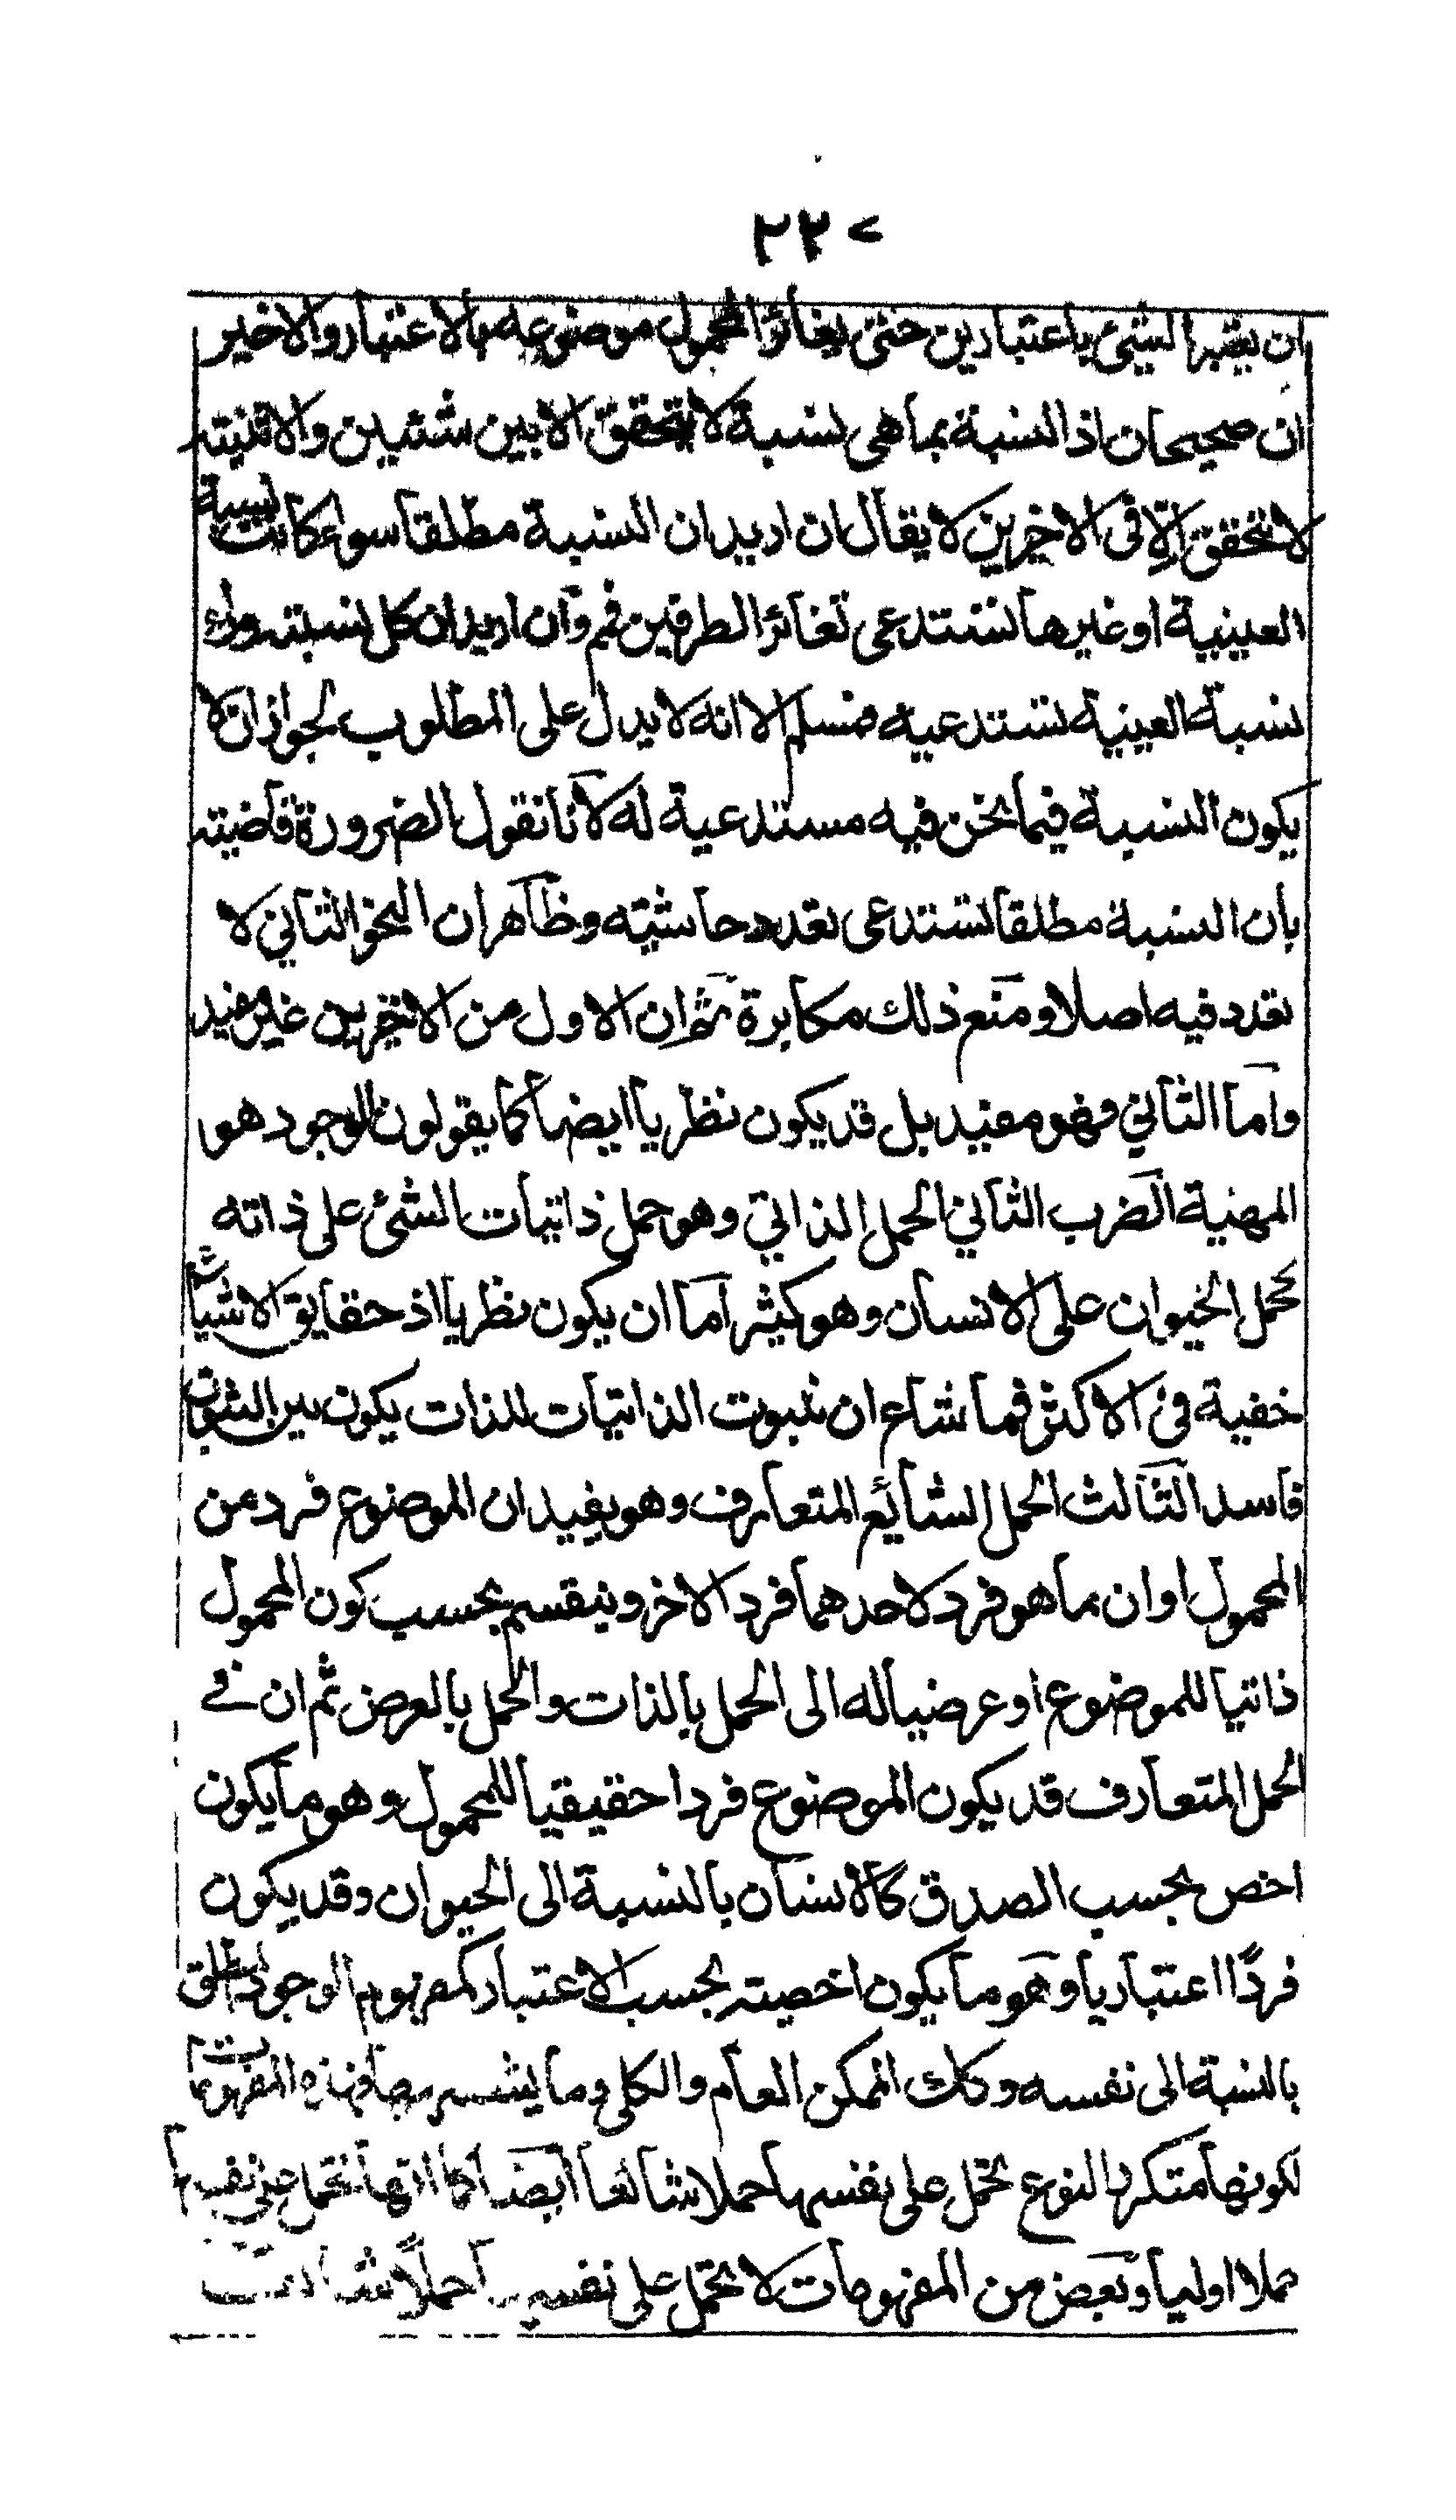 ٢٢
ان يقيد الشئ باعتبارين حتى يغائر المحمول موضوعه بالاعتبار والاخير
ان صحيحان اذ النسبة بما هى نسبة لا يتحقق الا بين شئين والاثنينية
لا تتحقق الا فى الاخيرين لا يقال ان اريد ان النسبة مطلقا سواء كانت نسبة
العينية او غيرها تستدعى تغائر الطرفين فم وان اريد ان كل نسبته وراء
نسبة العينية تستدعيه فمسلم الا انه لا يدل على المطلوب لجواز ان لا
يكون النسبة فيما نحن فيه مستدعية له لانا نقول الضرورة قاضية
بان النسبة مطلقا تستدعى تعدد حاشيته وظاهر ان النحو الثانى لا
تعدد فيه اصلا ومنع ذلك مكابرة ثم ان الاول من الاخيرين غير مفيد
واما الثانى فهو مفيد بل قد يكون نظريا ايضا كما يقولون الوجود هو
المهية الضرب الثانى الحمل الذاتى وهو حمل ذاتيات الشئ على ذاته
كحمل الحيوان على الانسان وهو كثيرا ما ان يكون نظريا اذ حقايق الاشياء
خفية فى الاكثر فما شاع ان ثبوت الذاتيات للذات يكون بين الثبوت
فاسد الثالث الحمل الشائع المتعارف وهو يفيد ان الموضوع فرد من
المحمول او ان ما هو فرد لاحدهما فرد الاخر وينقسم بحسب كون المحمول
ذاتيا للموضوع او عرضيا له الى الحمل بالذات والحمل بالعرض ثم ان فى
الحمل المتعارف قد يكون الموضوع فردا حقيقيا للمحمول وهو ما يكون
اخص بحسب الصدق كالانسان بالنسبة الى الحيوان وقد يكون
فردا اعتباريا وهو ما يكون اخصيته بحسب الاعتبار كمفهوم الوجود المطلق
بالنسبة الى نفسه وكذلك الممكن العام والكلى وما يشبهها فهذه المفهومات
لكونها متكررة النوع تحمل على نفسها حملا شائعا ايضا كما انها تحمل على نفسها
حملا اوليا وبعض من المفهومات لا تحمل على نفسها حملا شائعا